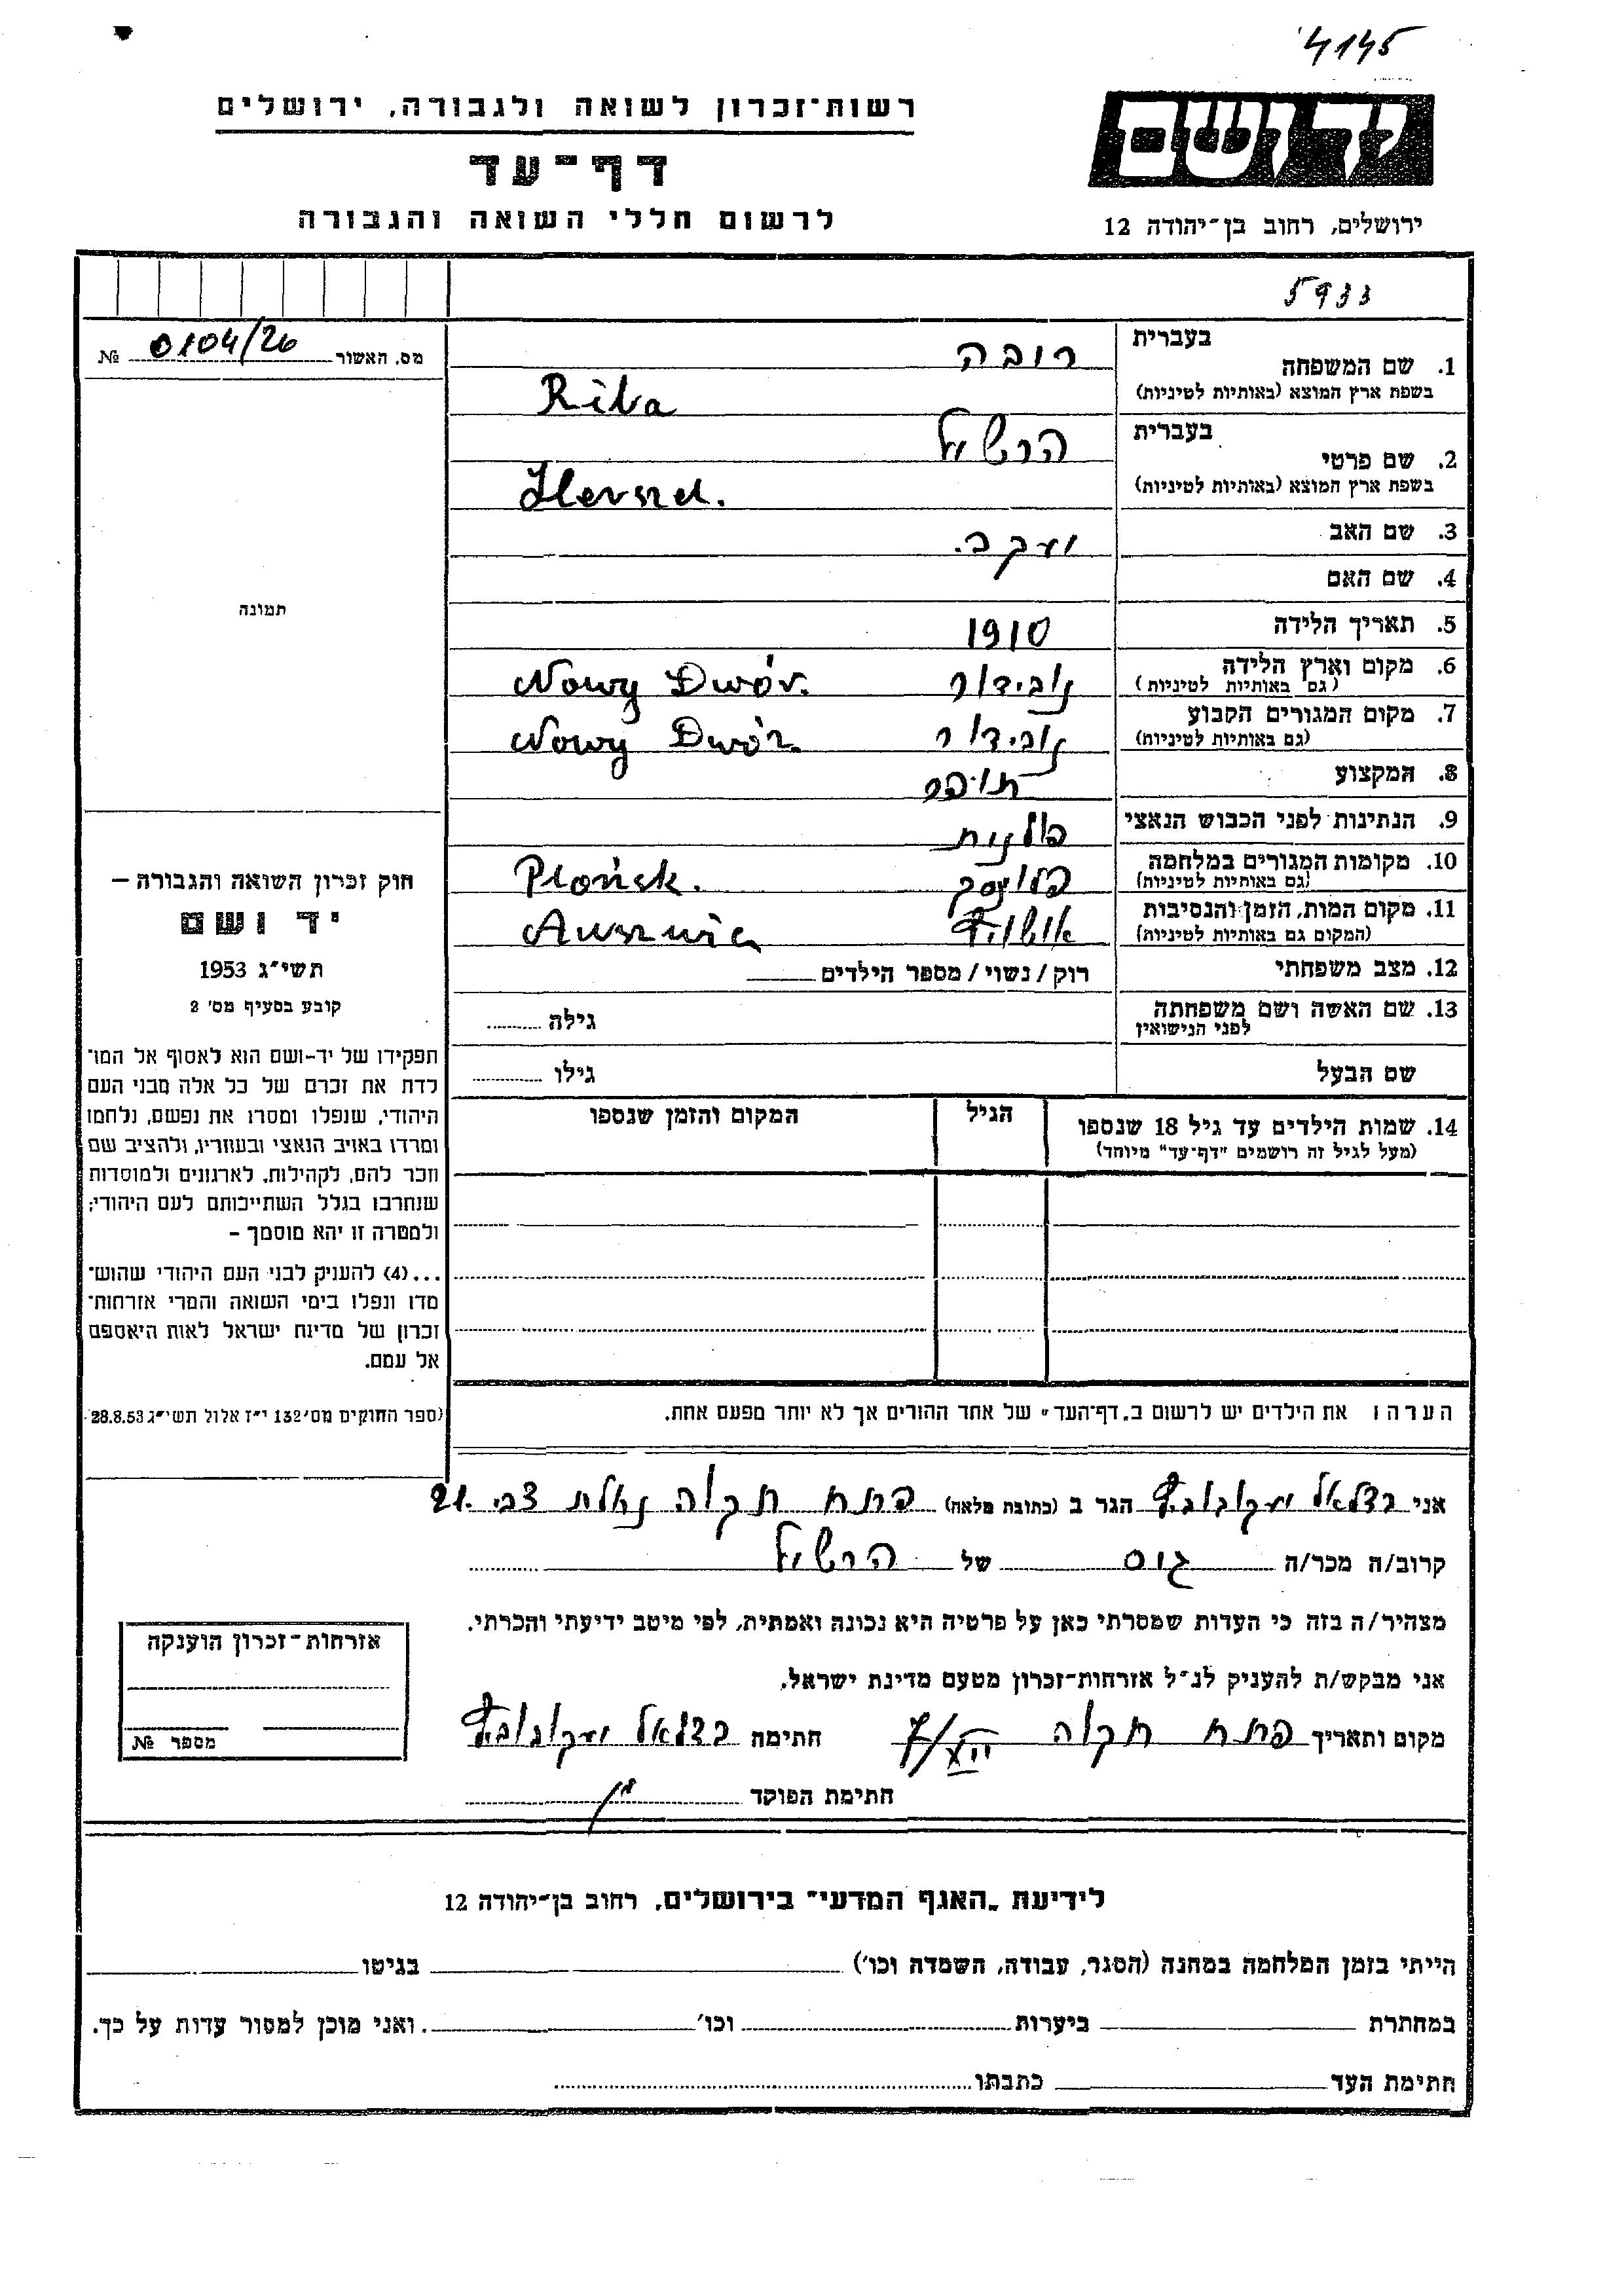 4145
רשות־זכרון לשואה ולגבורה, ירושלים
ידושם
דף־עד
לרשום חללי השואה והגבורה
ירושלים, רחוב בן־יהודה 12
5933
מס. האשור 0104/26 №
בעברית רובה
1. שם המשפחה
בשפת ארץ המוצא (באותיות לטיניות) Riba
בעברית הרשיל
2. שם פרטי
בשפת ארץ המוצא (באותיות לטיניות) Herszel.
3. שם האב יעקב.
4. שם האם
5. תאריך הלידה 1910
6. מקום וארץ הלידה נובידוור Nowy Dwór.
(גם באותיות לטיניות)
7. מקום המגורים הקבוע נובידוור Nowy Dwór.
(גם באותיות לטיניות)
8. המקצוע תופר
9. הנתינות לפני הכבוש הנאצי פולנית
10. מקומות המגורים במלחמה Płońsk.
(גם באותיות לטיניות)
11. מקום המות, הזמן והנסיבות אושויץ
(המקום גם באותיות לטיניות)
12. מצב משפחתי רוק/נשוי/מספר הילדים
13. שם האשה ושם משפחתה גילה
לפני הנישואין
שם הבעל גילו
14. שמות הילדים עד גיל 18 שנספו הגיל המקום והזמן שנספו
(מעל לגיל זה רושמים "דף־עד" מיוחד)
תמונה
חוק זכרון השואה והגבורה –
יד ושם
תשי״ג 1953
קובע בסעיף מס׳ 2
תפקידו של יד-ושם הוא לאסוף אל המו־
לדת את זכרם של כל אלה מבני העם
היהודי, שנפלו ומסרו את נפשם, נלחמו
ומרדו באויב הנאצי ובעוזריו, ולהציב שם
וזכר להם, לקהילות, לארגונים ולמוסדות
שנחרבו בגלל השתייכותם לעם היהודי;
ולמטרה זו יהא מוסמך –
...(4) להעניק לבני העם היהודי שהוש־
מדו ונפלו בימי השואה והמרי אזרחות־
זכרון של מדינת ישראל לאות היאספם
אל עמם.
(ספר החוקים מס׳ 132 י״ז אלול תשי״ג 28.8.53
הערה: את הילדים יש לרשום ב„דף־העד" של אחד ההורים אך לא יותר מפעם אחת.
אני בצלאל יעקובוביץ הגר ב (כתובת מלאה) פתח תקוה נחלת צבי. 21
קרוב/ה מכר/ה גיס של הרשיל
מצהיר/ה בזה כי העדות שמסרתי כאן על פרטיה היא נכונה ואמתית, לפי מיטב ידיעתי והכרתי.
אני מבקש/ת להעניק לנ״ל אזרחות־זכרון מטעם מדינת ישראל.
מקום ותאריך פתח תקוה חתימה בצלאל יעקובוביץ
חתימת הפוקד
אזרחות־זכרון הוענקה
מספר №
לידיעת „האגף המדעי" בירושלים, רחוב בן־יהודה 12
הייתי בזמן המלחמה במחנה (הסגר, עבודה, השמדה וכו׳) בגיטו
במחתרת ביערות וכו׳ . ואני מוכן למסור עדות על כך.
חתימת העד כתבתו